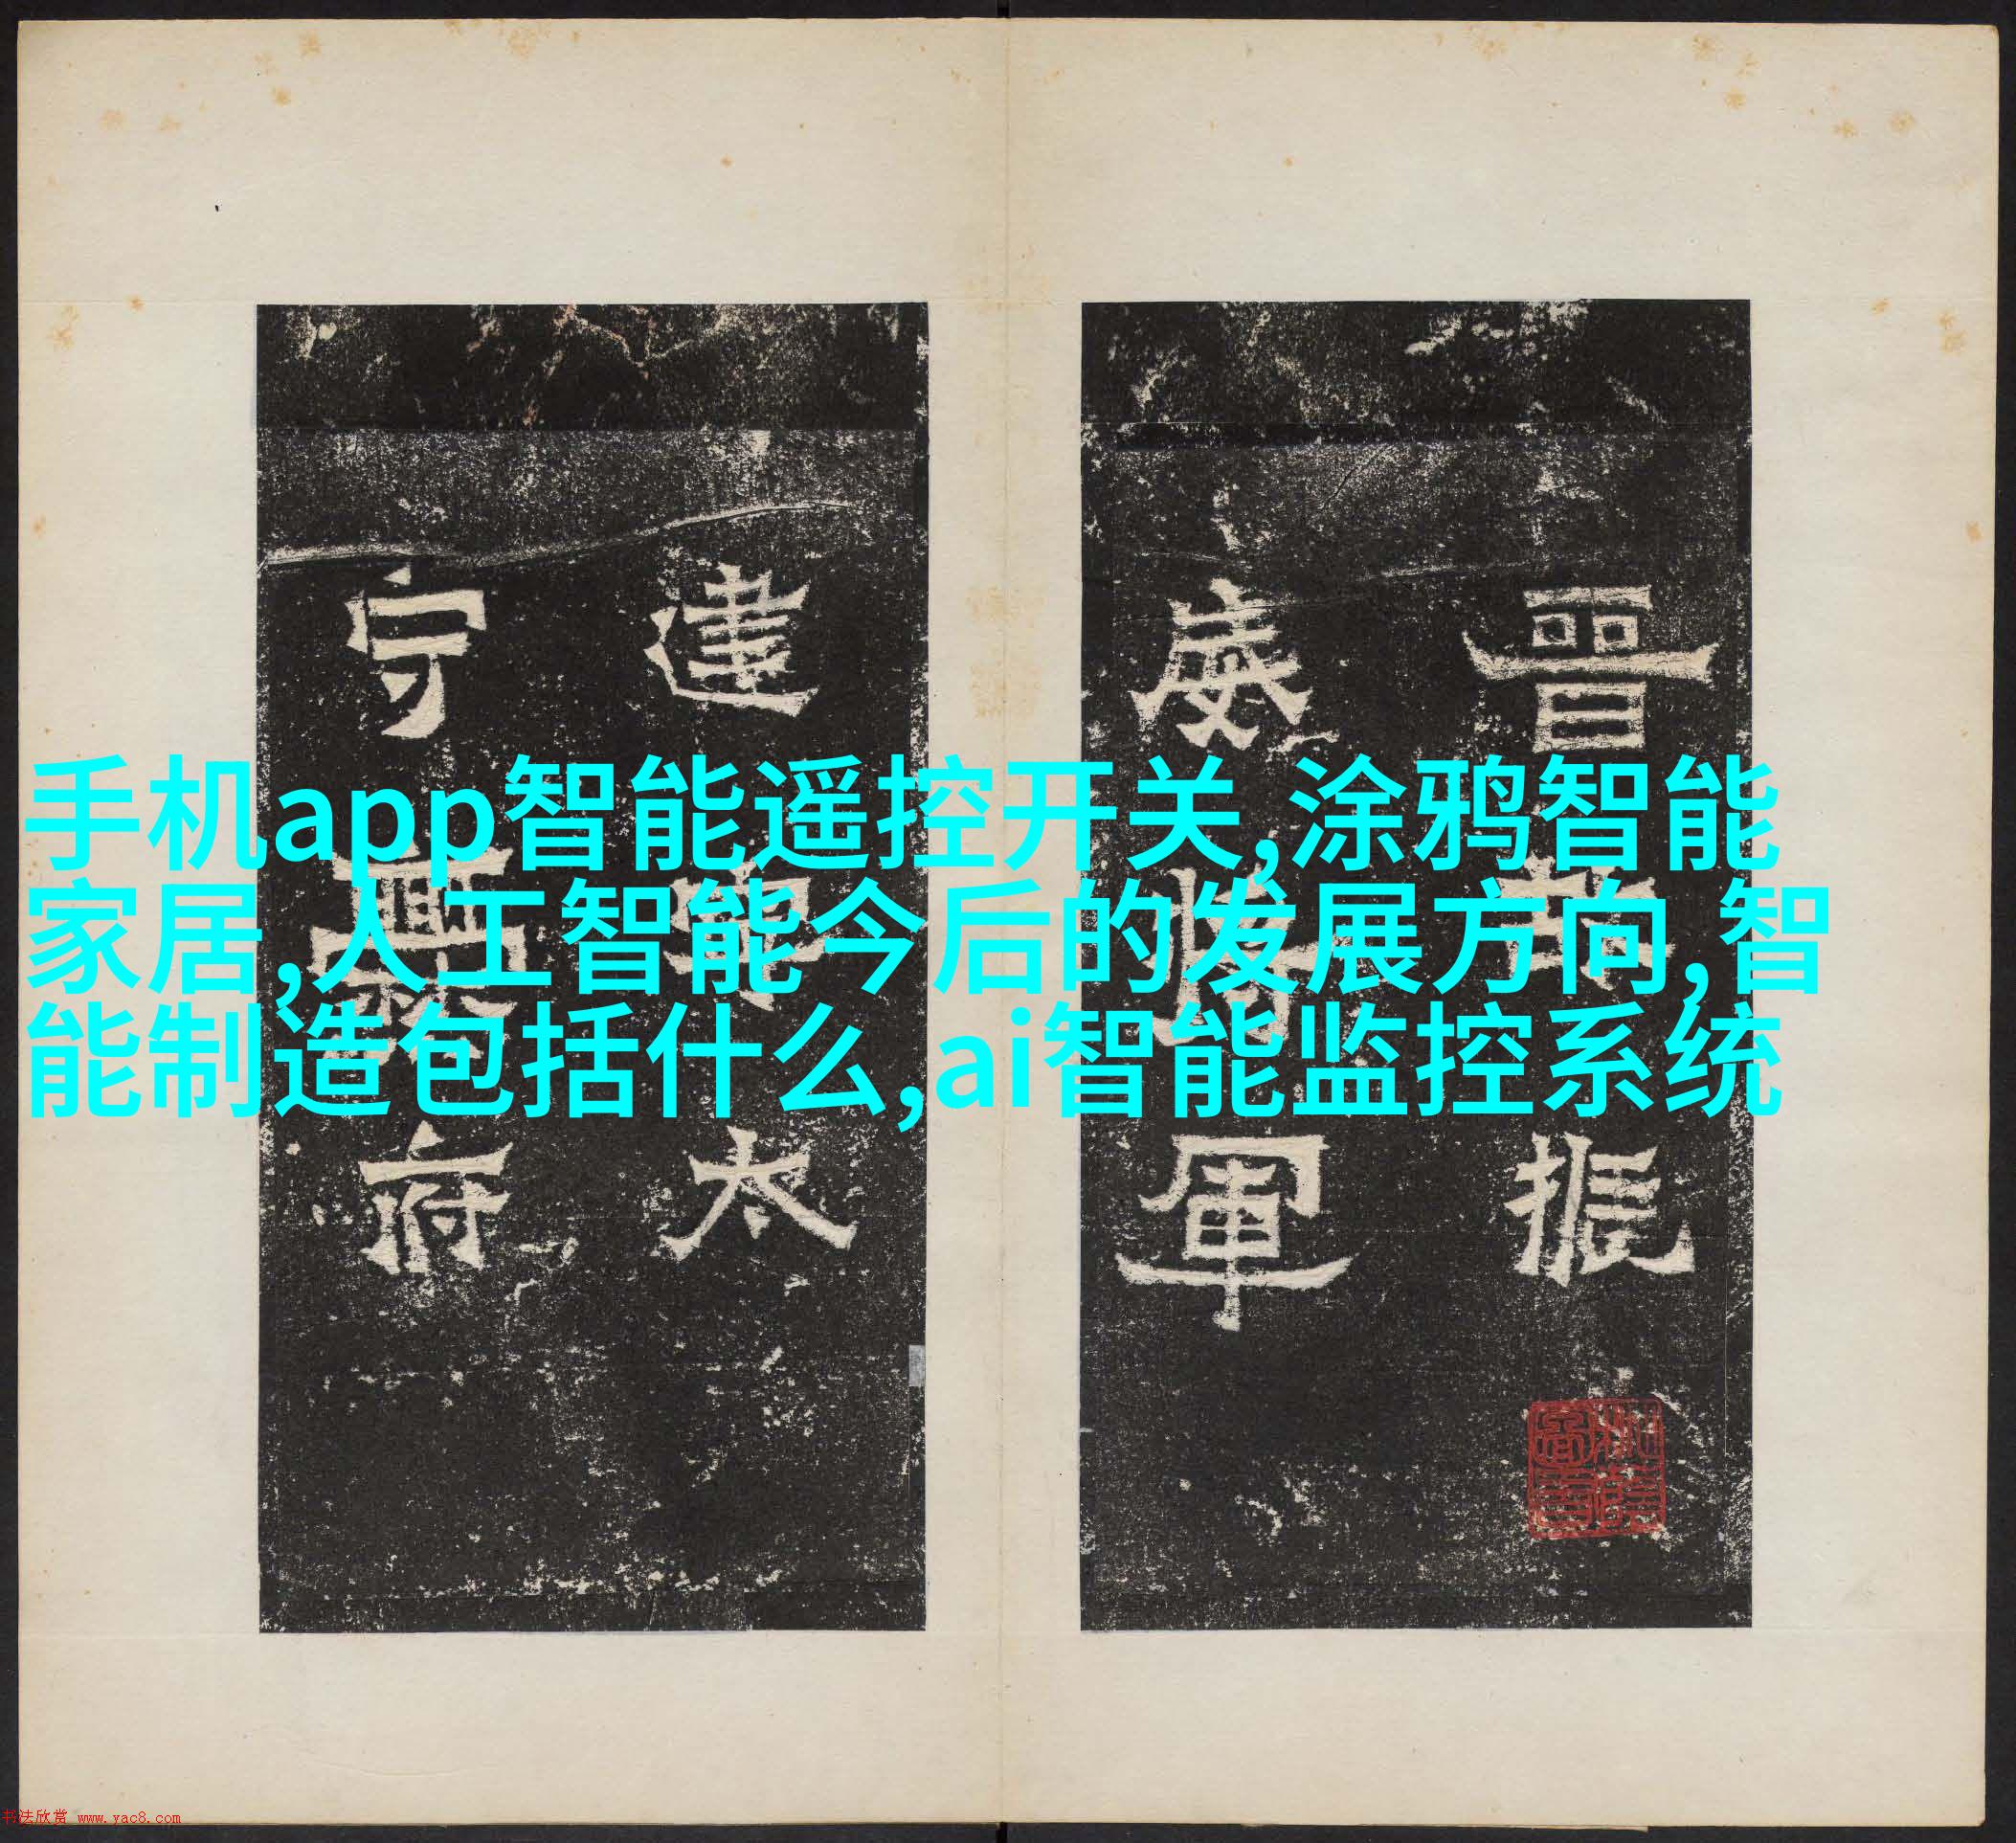 晉振
威將軍
建寧太
守爨府
手机app智能遥控开关,涂鸦智能
家居,人工智能今后的发展方向,智
能制造包括什么,ai智能监控系统
书法欣赏 www.yac8.com